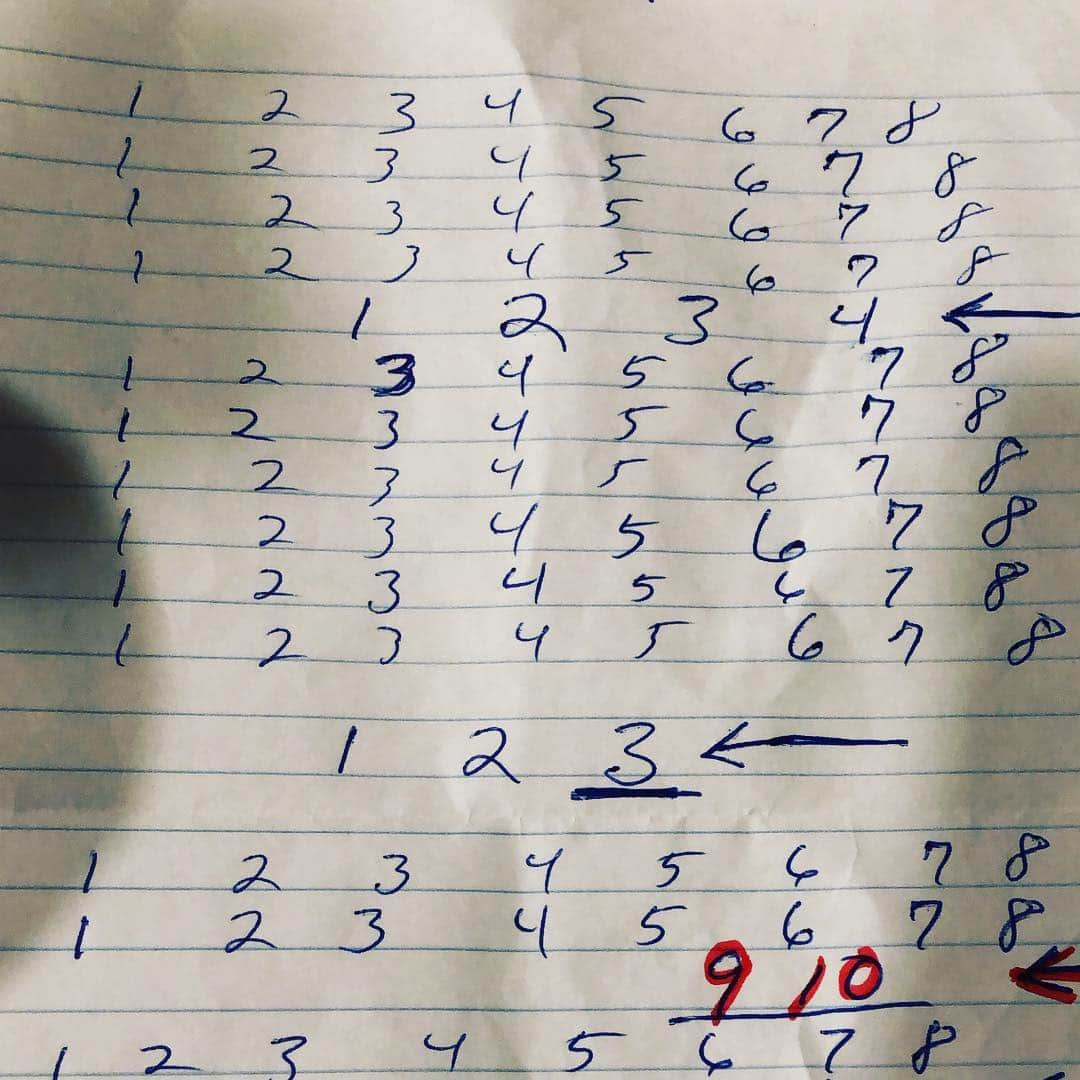 1 2 3 4 5 6 7 8
1 2 3 4 5 6 7 8
1 2 3 4 5 6 7 8
1 2 3 4 5 6 7 8
1 2 3 4 ←
1 2 3 4 5 6 7 8
1 2 3 4 5 6 7 8
1 2 3 4 5 6 7 8
1 2 3 4 5 6 7 8
1 2 3 4 5 6 7 8
1 2 3 4 5 6 7 8
1 2 3 ←
1 2 3 4 5 6 7 8
1 2 3 4 5 6 7 8
9 10 ←
1 2 3 4 5 6 7 8